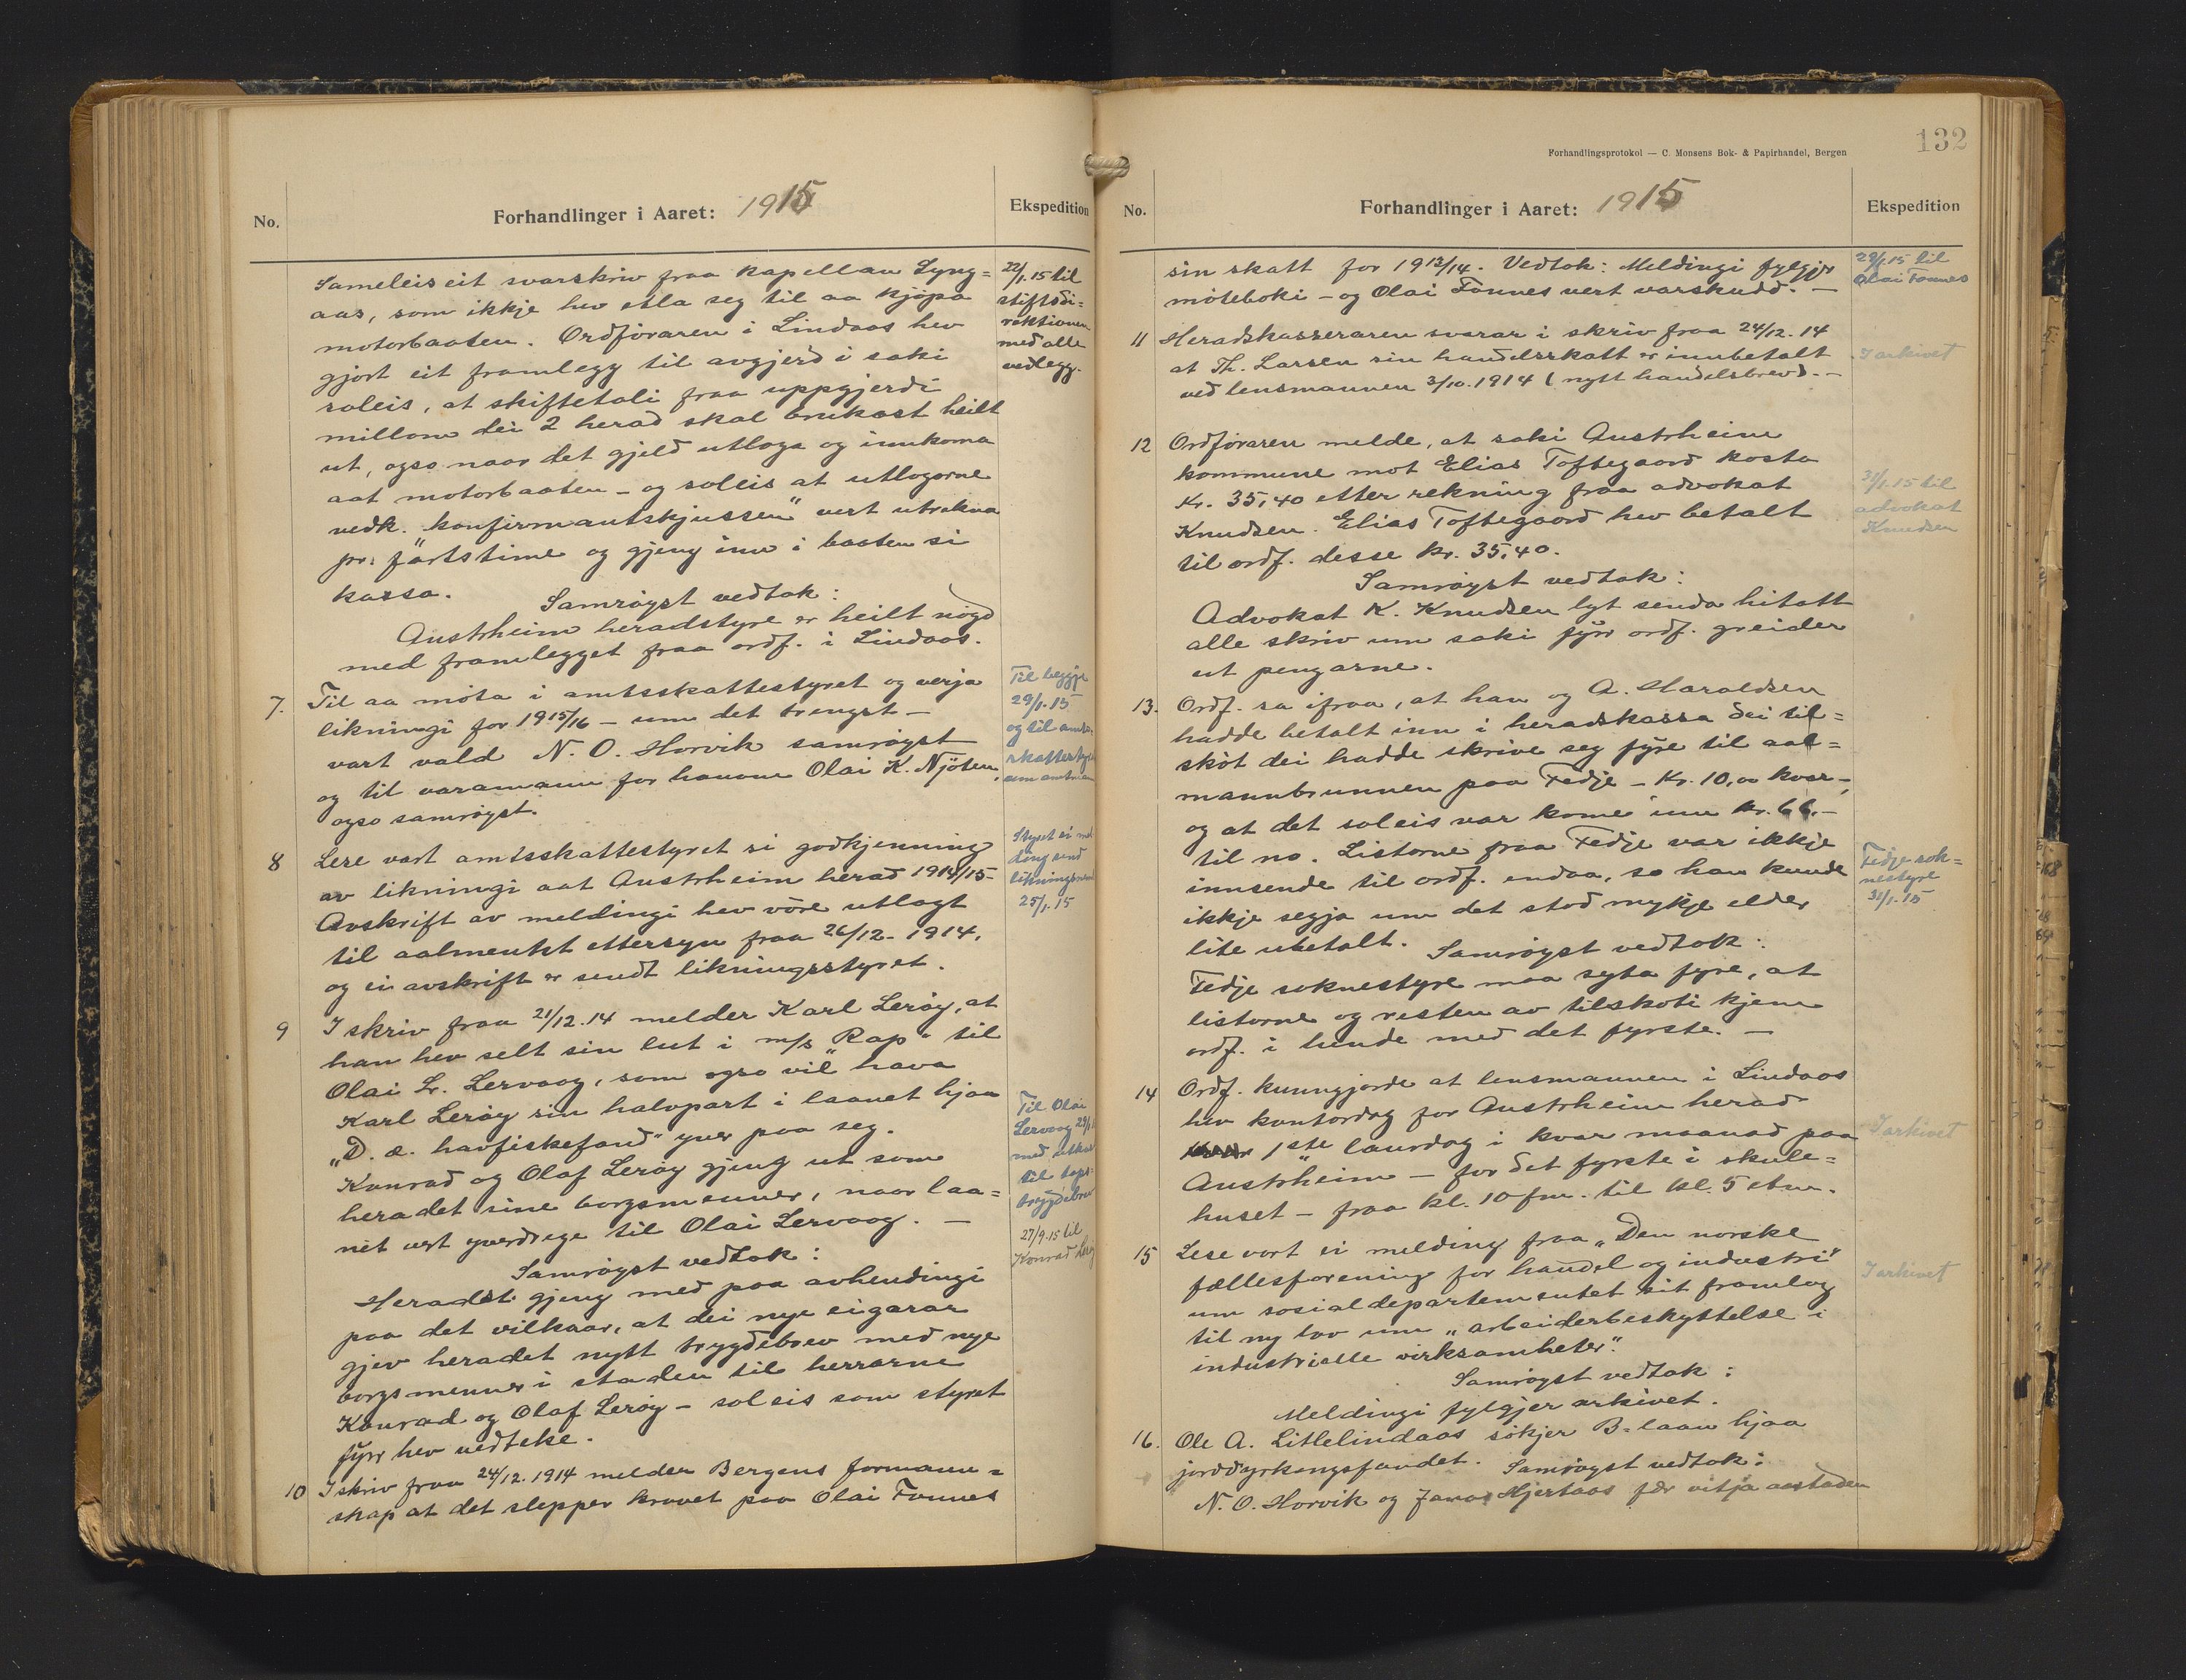 No.
Forhandlinger i Aaret: 1915
Ekspedition
Sameleis eit svarskriv fraa kapellan Lyng=
aas, som ikkje hev etla seg til aa kjöpa
motorbaaten. Ordföraren i Lindaas hev
gjort eit framlegg til avgjerd i saki
soleis, at skiftetali fraa uppgjerdi
millom dei 2 herad skal brukast heilt
ut, ogso naar det gjeld utloga og innkoma
aat motorbaaten - og soleis at utlogorne
vedk. "konfirmantskjussen" vert utrekna
pr. færtstime og gjeng inn i baaten si
kassa.
Samröyst vedtak:
Austrheim heradstyre er heilt nögd
med framlegget fraa ordf. i Lindaas.
22/1.15 til
stiftsdi=
rektionen
med alle
vedlegg.
7. Til aa möta i amtsskattestyret og verja
likningi for 1915/16 - um det trengst -
vart vald N. O. Horvik samröyst
og til varamann for honom Olai K. Njöten,
ogso samröyst.
Til beggje
29/1.15
og til amts-
skattestyret
8 Lese vart amtsskattestyret si godkjenning
av likningi aat Austrheim herad 1914/15-
Avskrift av meldingi hev vöre utlagt
til aalmenkt ettersyn fraa 26/12-1914,
og ei avskrift er sendt likningsstyret.
Styret ei mel
ding send
likningsnemd
25/1.15
9 I skriv fraa 21/12.14 melder Karl Leröy, at
han hev selt sin lut i m/s "Rap" til
Olai L. Lervaag, som ogso vil hava
Karl Leröy sin halvpart i laanet hjaa
"D. æ. havfiskefond" yver paa seg.
Konrad og Olaf Leröy gjeng ut som
heradet sine borgsmenner, naar laa=
net vert yverdrege til Olai Lervaag. -
Samröyst vedtak:
Heradet gjeng med paa avhendingi
paa det vilkaar, at dei nye eigarar
gjev heradet nytt trygdebrev med nye
borgsmenner i staden til herrarne
Konrad og Olaf Leröy - soleis som styret
fyrr hev vedteke.
Til Olai
Lervaag 29/1.15
med utkast
til
trygdebrev
27/9.15 til
Konrad Leröy
10 I skriv fraa 24/12.1914 melder Bergens formann=
skap at det slepper kravet paa Olai Fonnes
Forhandlingsprotokol — C. Monsens Bok- & Papirhandel, Bergen
132
No.
Forhandlinger i Aaret: 1915
Ekspedition
sin skatt for 1913/14. Vedtok: Meldingi fylgjer
möteboki - og Olai Fonnes vert varskudd. -
29/1.15 til
Olai Fonnes
11 Heradskasseraren svarar i skriv fraa 24/12.14
at Th. Larsen sin handelsskatt er innbetalt
ved lensmannen 3/10.1914 (nytt handelsbrev). -
I arkivet
12 Ordföraren melde, at saki Austrheim
kommune mot Elias Toftegaard kosta
kr. 35,40 etter rekning fraa advokat
Knudsen. Elias Toftegaard hev betalt
til ordf. desse kr. 35,40.
Samröyst vedtak:
Advokat K. Knudsen lyt senda hitatt
alle skriv um saki fyrr ordf. greider
ut pengarne.
31/1.15 til
advokat
Knudsen
13. Ordf. sa ifraa, at han og A. Haraldsen
hadde betalt inn i heradskassa dei til=
sköt dei hadde skrive seg fyre til aal=
mannbrunnen paa Fedje - kr. 10,00 kvar -,
og at det soleis var kome inn kr. 66,-
til no. Listorne fraa Fedje var ikkje
innsende til ordf. endaa, so han kunde
ikkje segja um det stod mykje elder
lite ubetalt. Samröyst vedtok:
Fedje soknestyre maa syta fyre, at
listorne og resten av tilskoti kjem
ordf. i hende med det fyrste. -
Fedje sok=
nestyre
31/1.15
14 Ordf. kunngjorde at lensmannen i Lindaas
hev kontordag for Austrheim herad
1ste laurdag i kvar maanad paa
Austrheim - for det fyrste i skule=
huset - fraa kl. 10 fm. til kl. 5 etm.
I arkivet
15 Lese vart ei melding fraa "Den norske
fællesforening for handel og industri"
um sosialdepartementet sit framlag
til ny lov um "arbeiderbeskyttelse i
industrielle virksamheter."
Samröyst vedtok:
Meldingi fylgjer arkivet.
I arkivet
16. Ole A. Litlelindaas sökjer B-laan hjaa
jorddyrkingsfondet. Samröyst vedtok:
N. O. Horvik og Jonas Hjertaas fær vitja aastaden